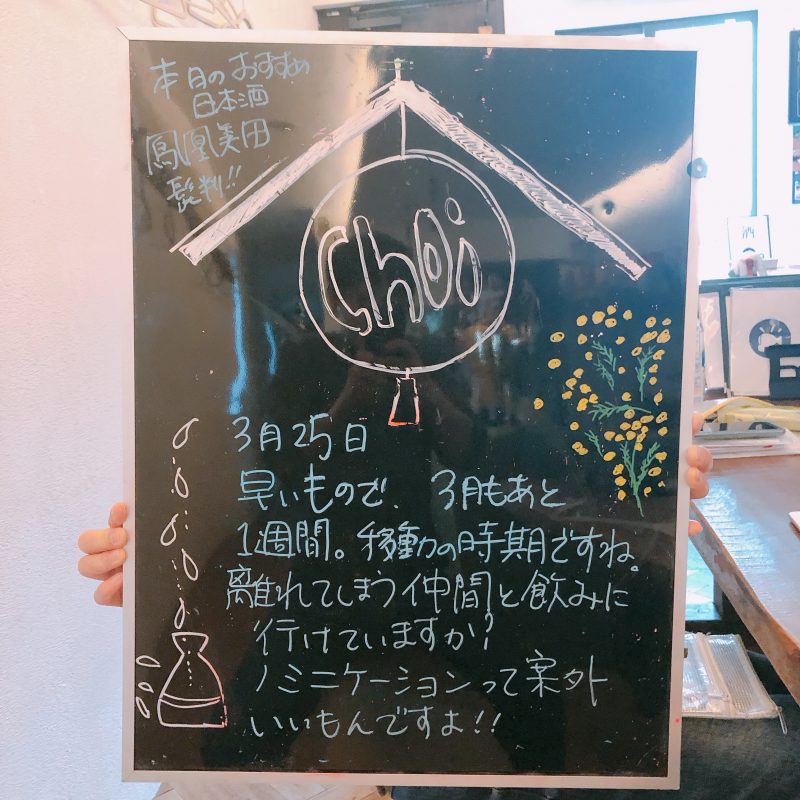 本日のおすすめ
日本酒
鳳凰美田
髭判!!
Choi
3月25日
早いもので、3月もあと
1週間。移動の時期ですね。
離れてしまう仲間と飲みに
行けていますか?
ノミニケーションって案外
いいもんですよ!!